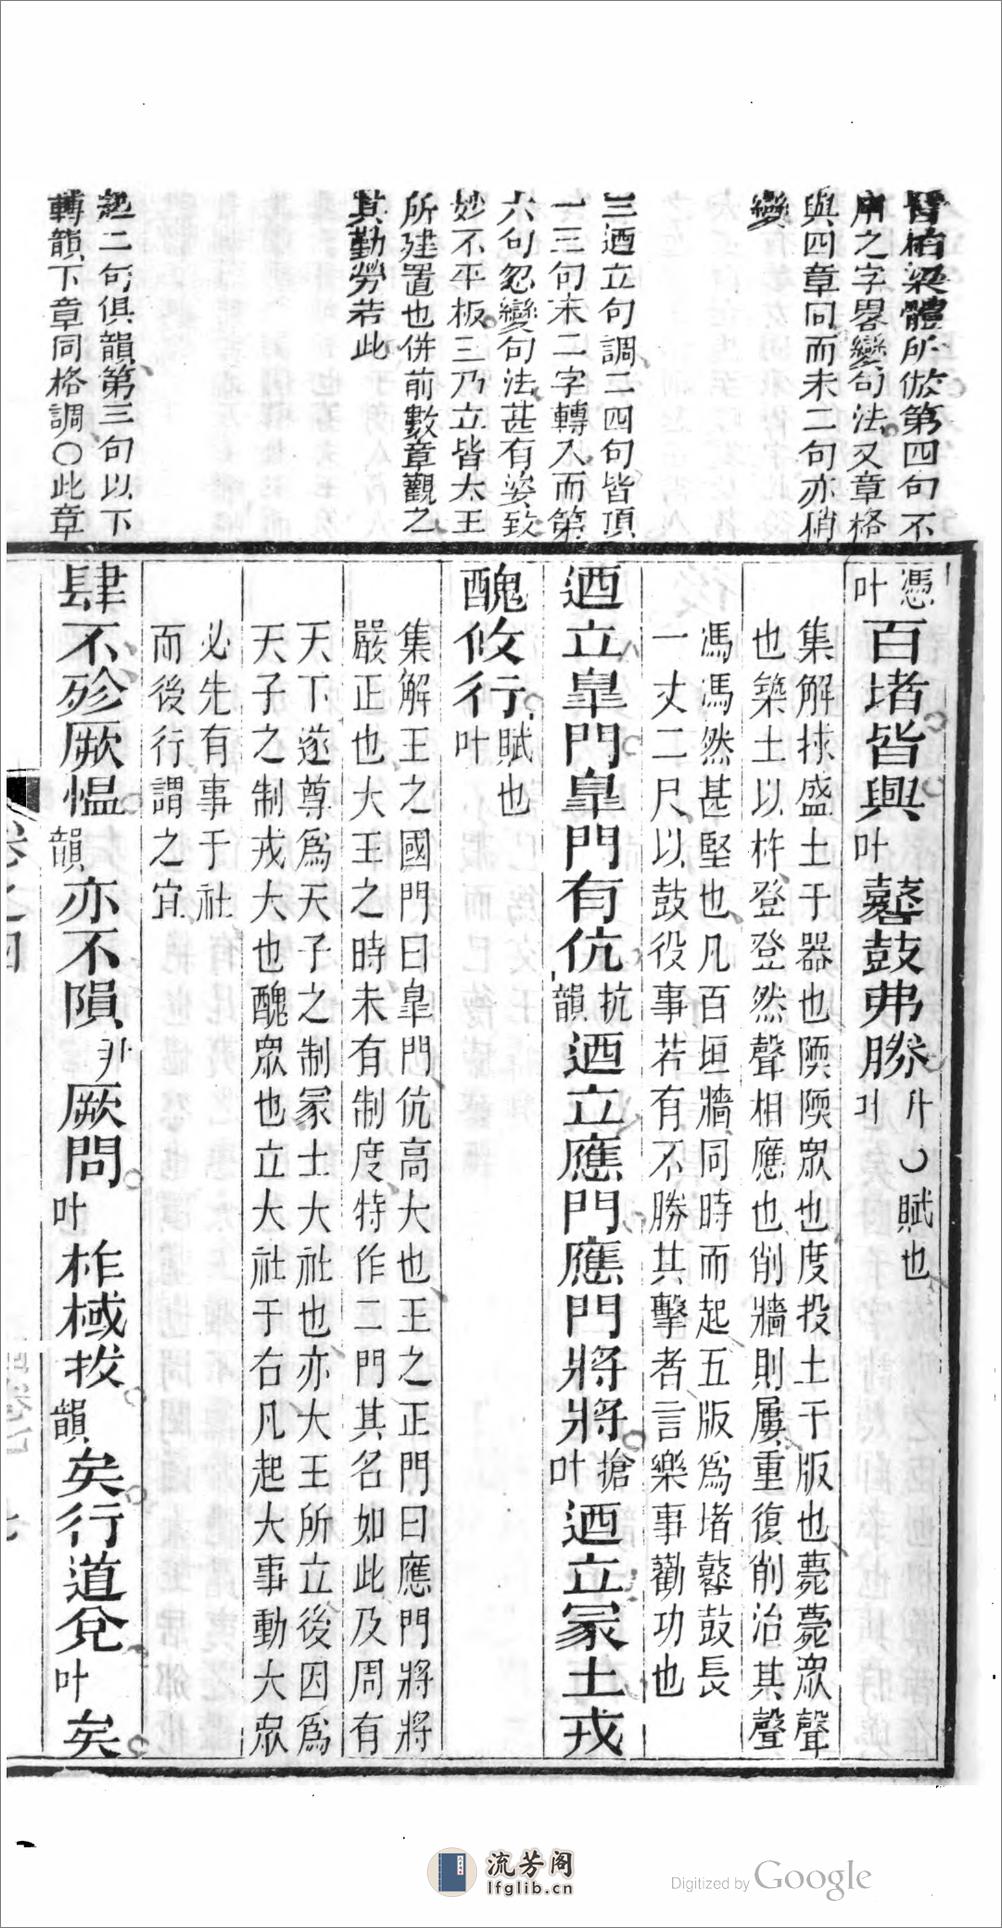 晉柏梁體所倣第四句不
用之字畧變句法又章格
與四章同而末二句亦稍
變
三迺立句調二四句皆頂
一三句末二字轉入而第
六句忽變句法甚有姿致
妙不平板三乃立皆太王
所建置也併前數章觀之
其勤勞若此
起二句俱韻第三句以下
轉韻下章同格調○此章
憑叶百堵皆興叶鼛鼓弗勝叶○賦也
集解捄盛土于器也陾陾眾也度投土于版也薨薨眾聲
也築土以杵登登然聲相應也削牆則屢重復削治其聲
馮馮然甚堅也凡百垣牆同時而起五版為堵鼛鼓長
一丈二尺以鼓役事若有不勝其擊者言樂事勸功也
迺立皐門皐門有伉抗韻迺立應門應門將將搶叶迺立冡土戎
醜攸行叶賦也
集解王之國門曰皐門伉高大也王之正門曰應門將將
嚴正也大王之時未有制度特作二門其名如此及周有
天丁遂尊為天子之制冡土大社也亦大王所立後因為
天子之制戎大也醜眾也立大社于右凡起大事動大眾
必先有事于社
而後行謂之宜
肆不殄厥慍韻亦不隕叶厥問叶柞棫拔韻矣行道兌叶矣
卷之四
流芳阁
lfglib.cn
Digitized by Google